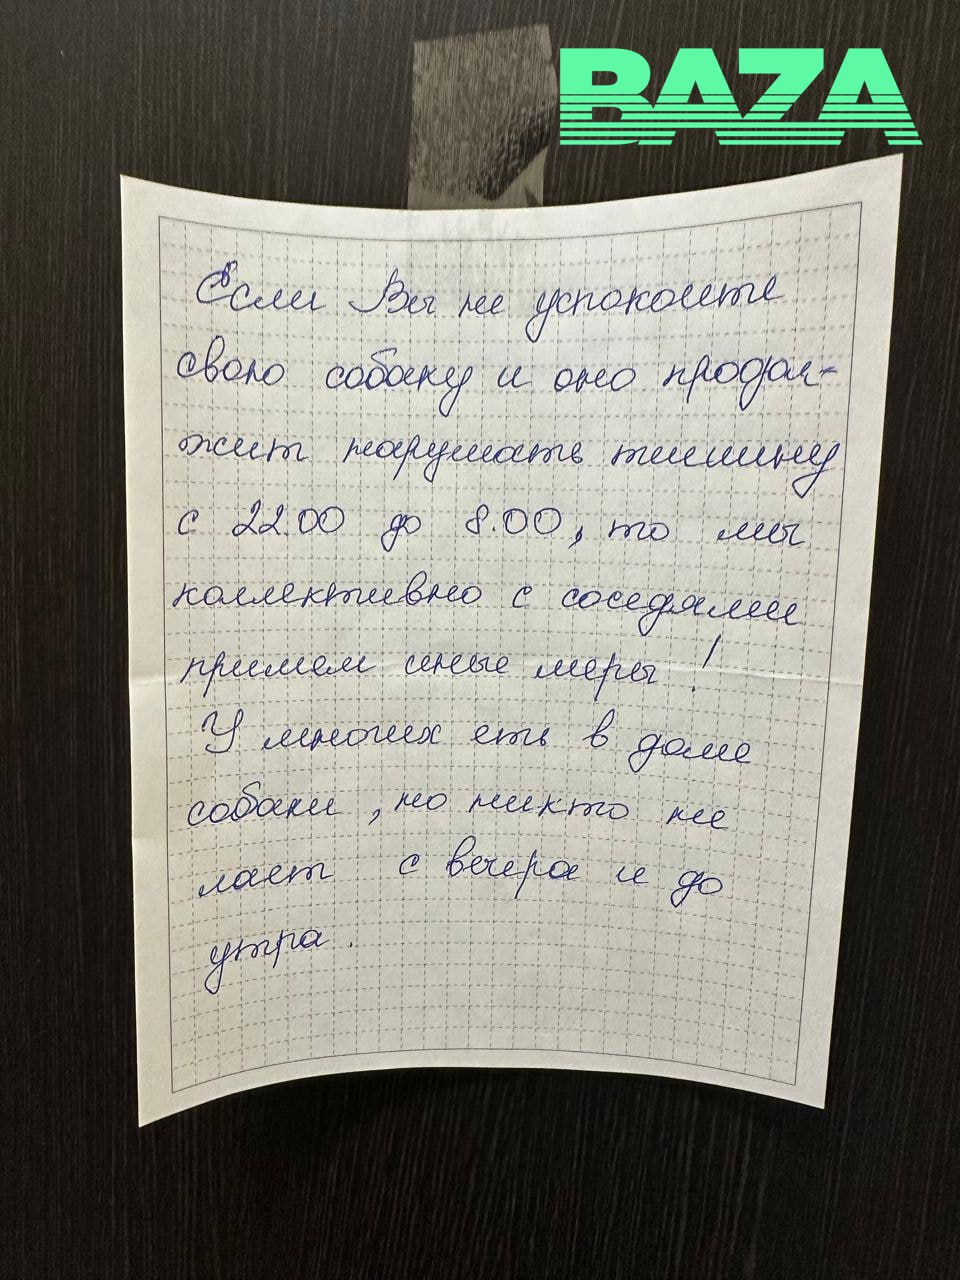 BAZA
Если Вы не успокоите
свою собаку и оно продол-
жит нарушать тишину
с 22.00 до 8.00, то мы
коллективно с соседями
примем иные меры!
У многих есть в доме
собаки, но никто не
лает с вечера и до
утра.